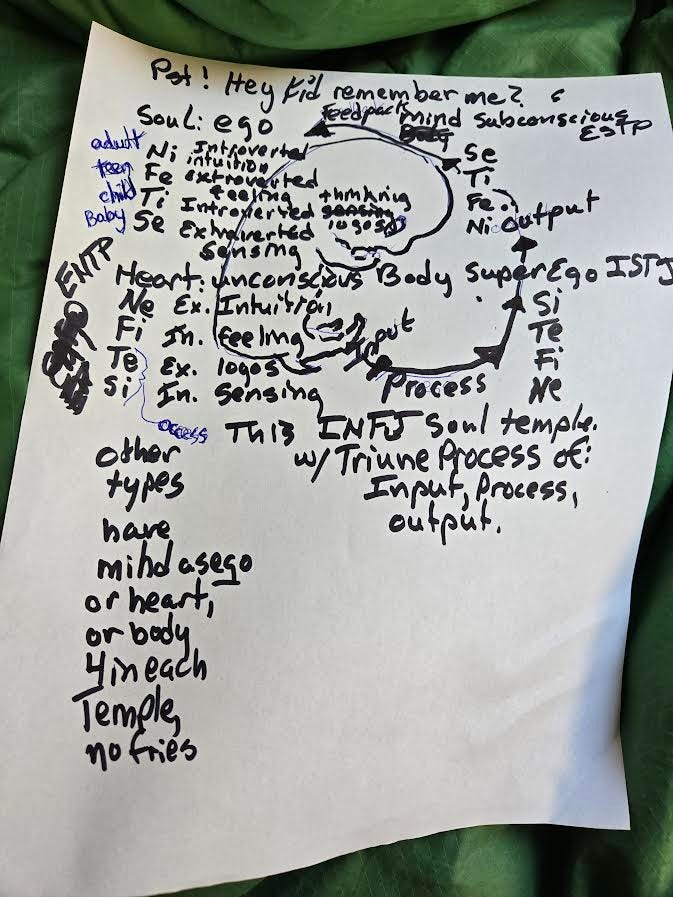 Pst! Hey kid remember me?
Soul: ego
Feedback
mind subconscious
ESTP
adult Ni Introverted intuition
teen Fe extroverted feeling
child Ti Introverted thinking logos
Baby Se Extraverted Sensing
Se
Ti
Fe
Ni output
ENTP
Heart: unconscious
Ne Ex. Intuition
Fi In. feeling
Te Ex. logos
Si In. Sensing
Body SuperEgo ISTJ
Si
Te
Fi
Ne
Input
Process
access
This INFJ Soul temple.
w/ Triune Process of:
Input, Process,
output.
other
types
have
mind as ego
or heart,
or body
4 in each
Temple,
no fries